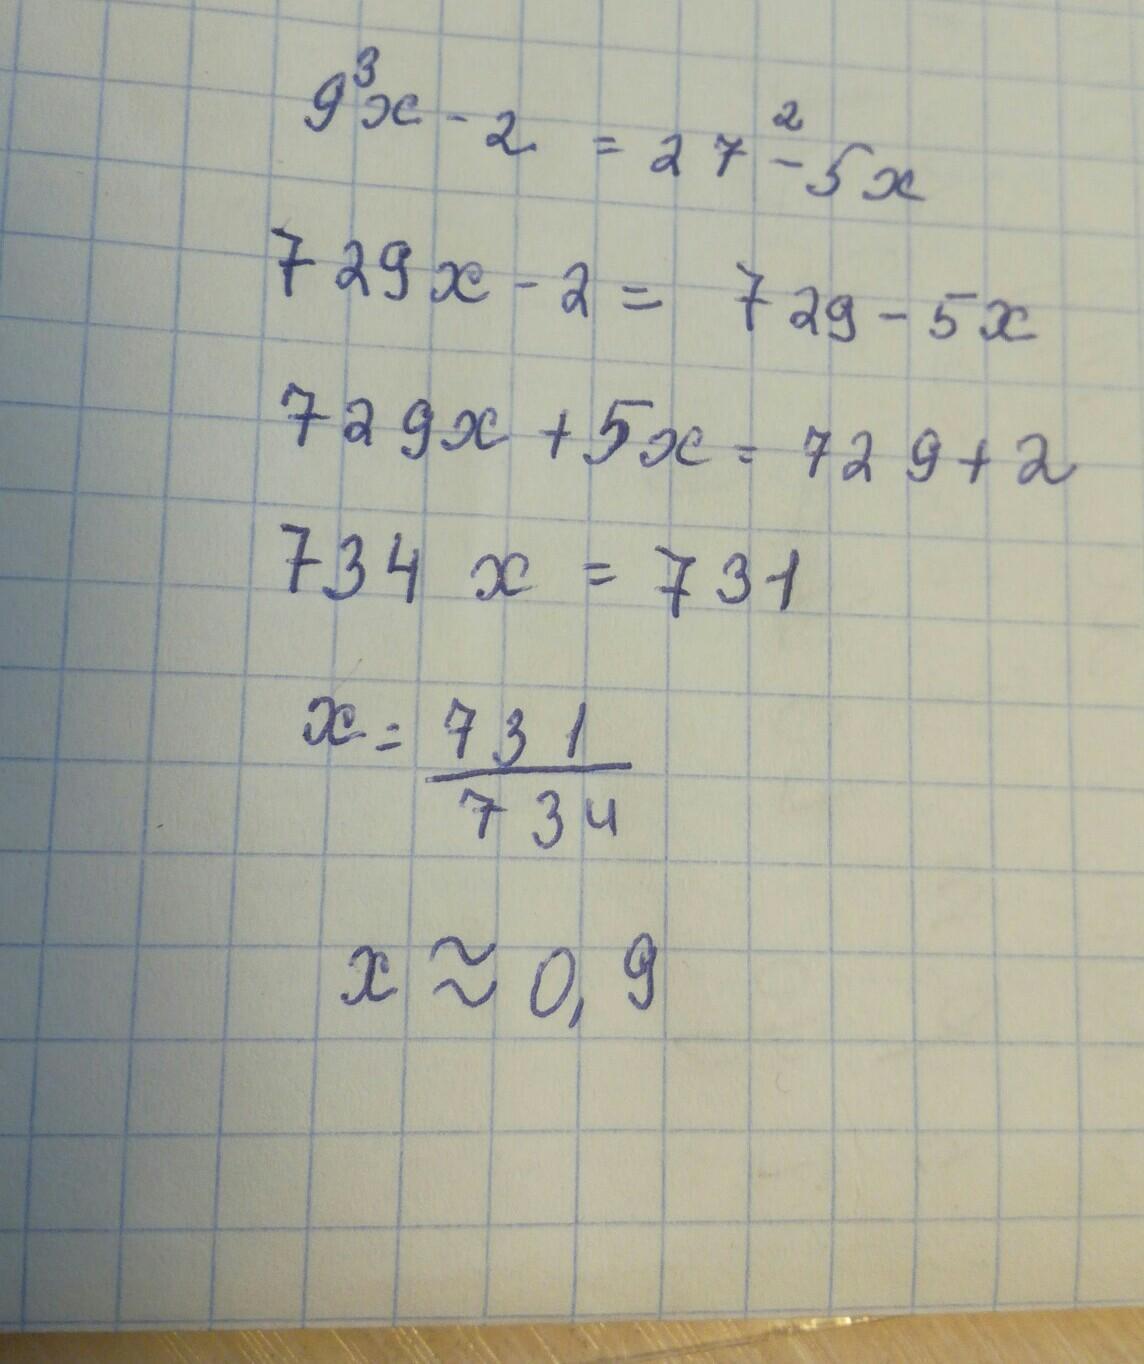 9³x - 2 = 27² - 5x
729x - 2 = 729 - 5x
729x + 5x = 729 + 2
734 x = 731
x = 731/734
x ≈ 0,9